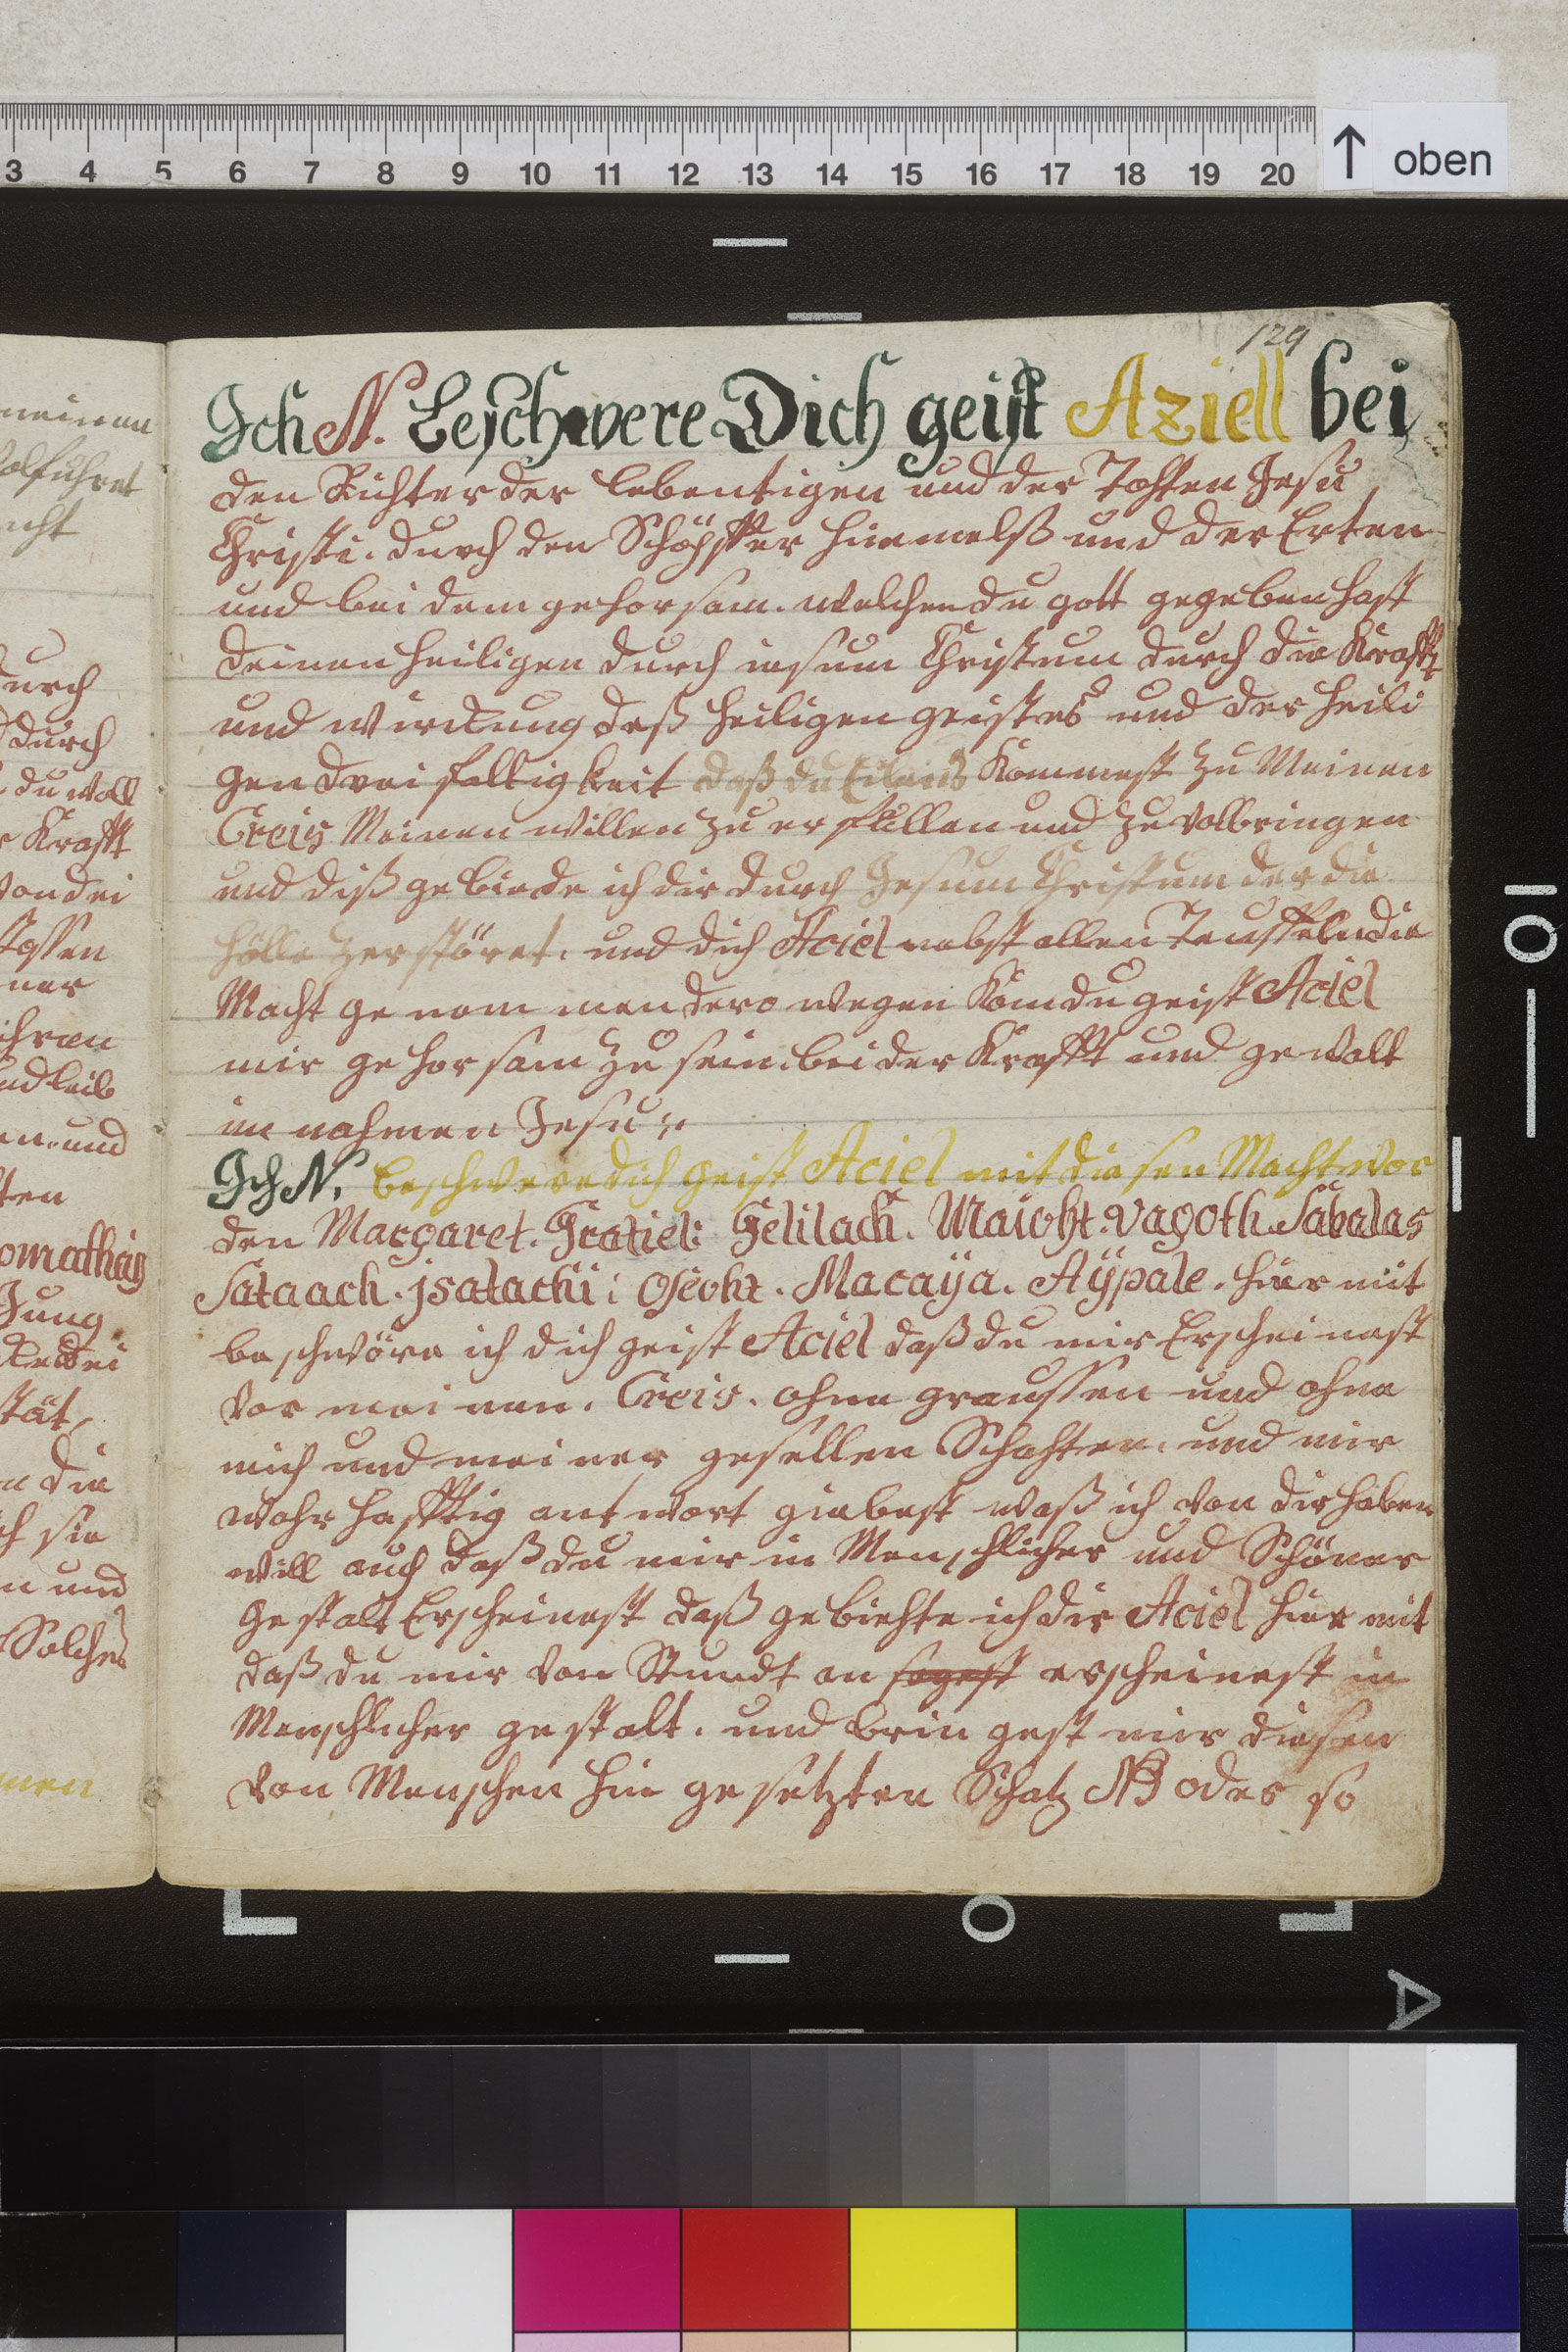 3 4 5 6 7 8 9 10 11 12 13 14 15 16 17 18 19 20
↑ oben
129
Ich N. beschwere Dich geist Aziell bei
den Richter der lebentigen und der Tohten Jesu
Christi. durch den Schöpffer himmelß und der Erten
und bei dem gehorsam. welchen du gott gegeben hast
deinen heiligen durch iesum Christum durch die Krafft
und wirckung deß heiligen geistes und der heili
gen dreifaltigkeit daß du Eilend Kommest zu Meinen
Creis Meinen willen zu erfüllen und zu volbringen
und diß gebiede ich dir durch Jesum Christum der die
hölle zerstöret. und dich Aciel nebst allen Teuffeln die
Macht genommen dero wegen Kom du geist Aciel
mir gehorsam zu sein. bei der Krafft und gewalt
im nahmen Jesu
Ich N. beschwere dich geist Aciel mit diesen Machtwor
den Margaret. Gratiel: Gelilach. Maioht. vagoth. Sabalas
Sataach. jsatachi: Oseoht. Macaÿa. Aÿpale. hier mit
beschwöre ich dich geist Aciel daß du mir Erscheinest
vor meinen. Creis. ohne graussen und ohne
mich und meiner gesellen Schahten. und mir
wahrhafftig antwort giebest waß ich von dir haben
will auch daß du mir in Menschlicher und Schöner
gestalt Erscheinest daß gebiehte ich dir Aciel hier mit
daß du mir von Stundt an sagest erscheinest in
Menschlicher gestalt. und bringest mir diesen
von Menschen hin gesetzten Schatz NB oder so
meinen
volführet
durch
durch
du woll
Krafft
von dei
ner
ihren
und leib
und
ten
Jung
die
sie
und
Solches
men